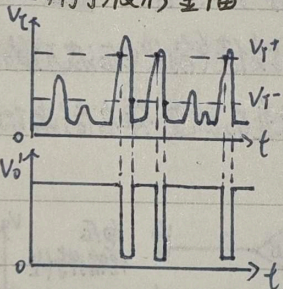 V_I
V_T+
V_T-
0
t
V_O'
0
t